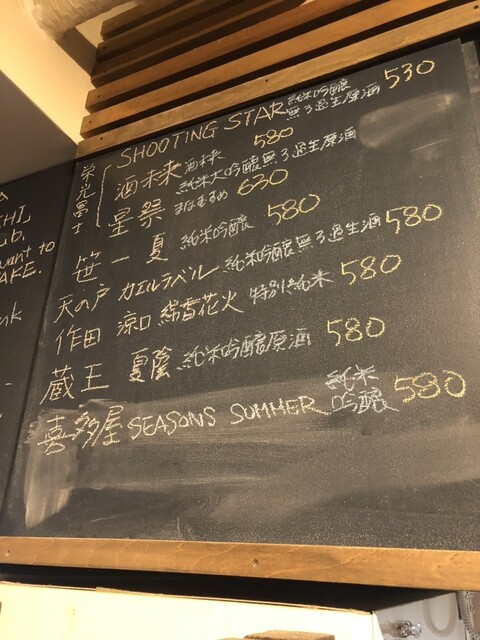 栄光冨士
SHOOTING STAR 純米吟醸 無ろ過生原酒 530
酒未来 酒未来 純米大吟醸無ろ過生原酒 580
星祭 まなむすめ 630
笹一 夏 純米吟醸 580
天の戸 カエルラベル 純米吟醸無ろ過生酒 580
作田 涼口 綿雪花火 特別純米 580
蔵王 夏陰 純米吟醸原酒 580
喜多屋 SEASONS SUMMER 純米吟醸 580
HI,
ub,
want to
AKE.
nk